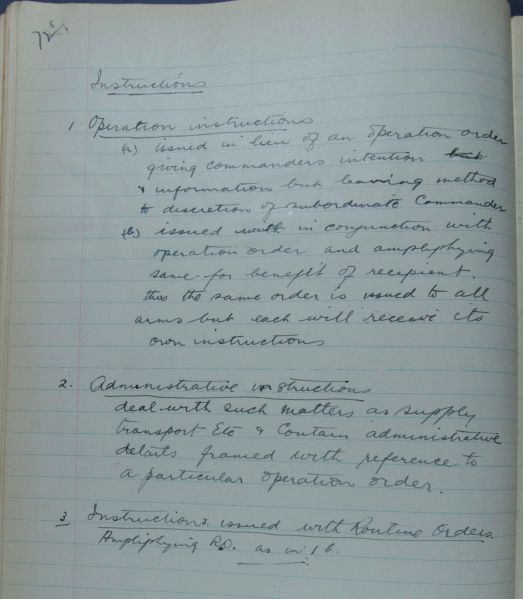 72.
Instructions
1 Operation instructions
(a) issued in lieu of an operation order
giving commanders intention but
& information but leaving method
to discretion of subordinate Commander
(b) issued with in conjunction with
operation order and ampliphying
same for benefit of recipient.
thus the same order is issued to all
arms but each will receive its
own instructions
2. Administrative instructions
deal with such matters as supply
transport Etc & Contain administrative
details framed with reference to
a particular operation order.
3 Instructions issued with Routine Orders.
Ampliphying R.O. as in 1 b.